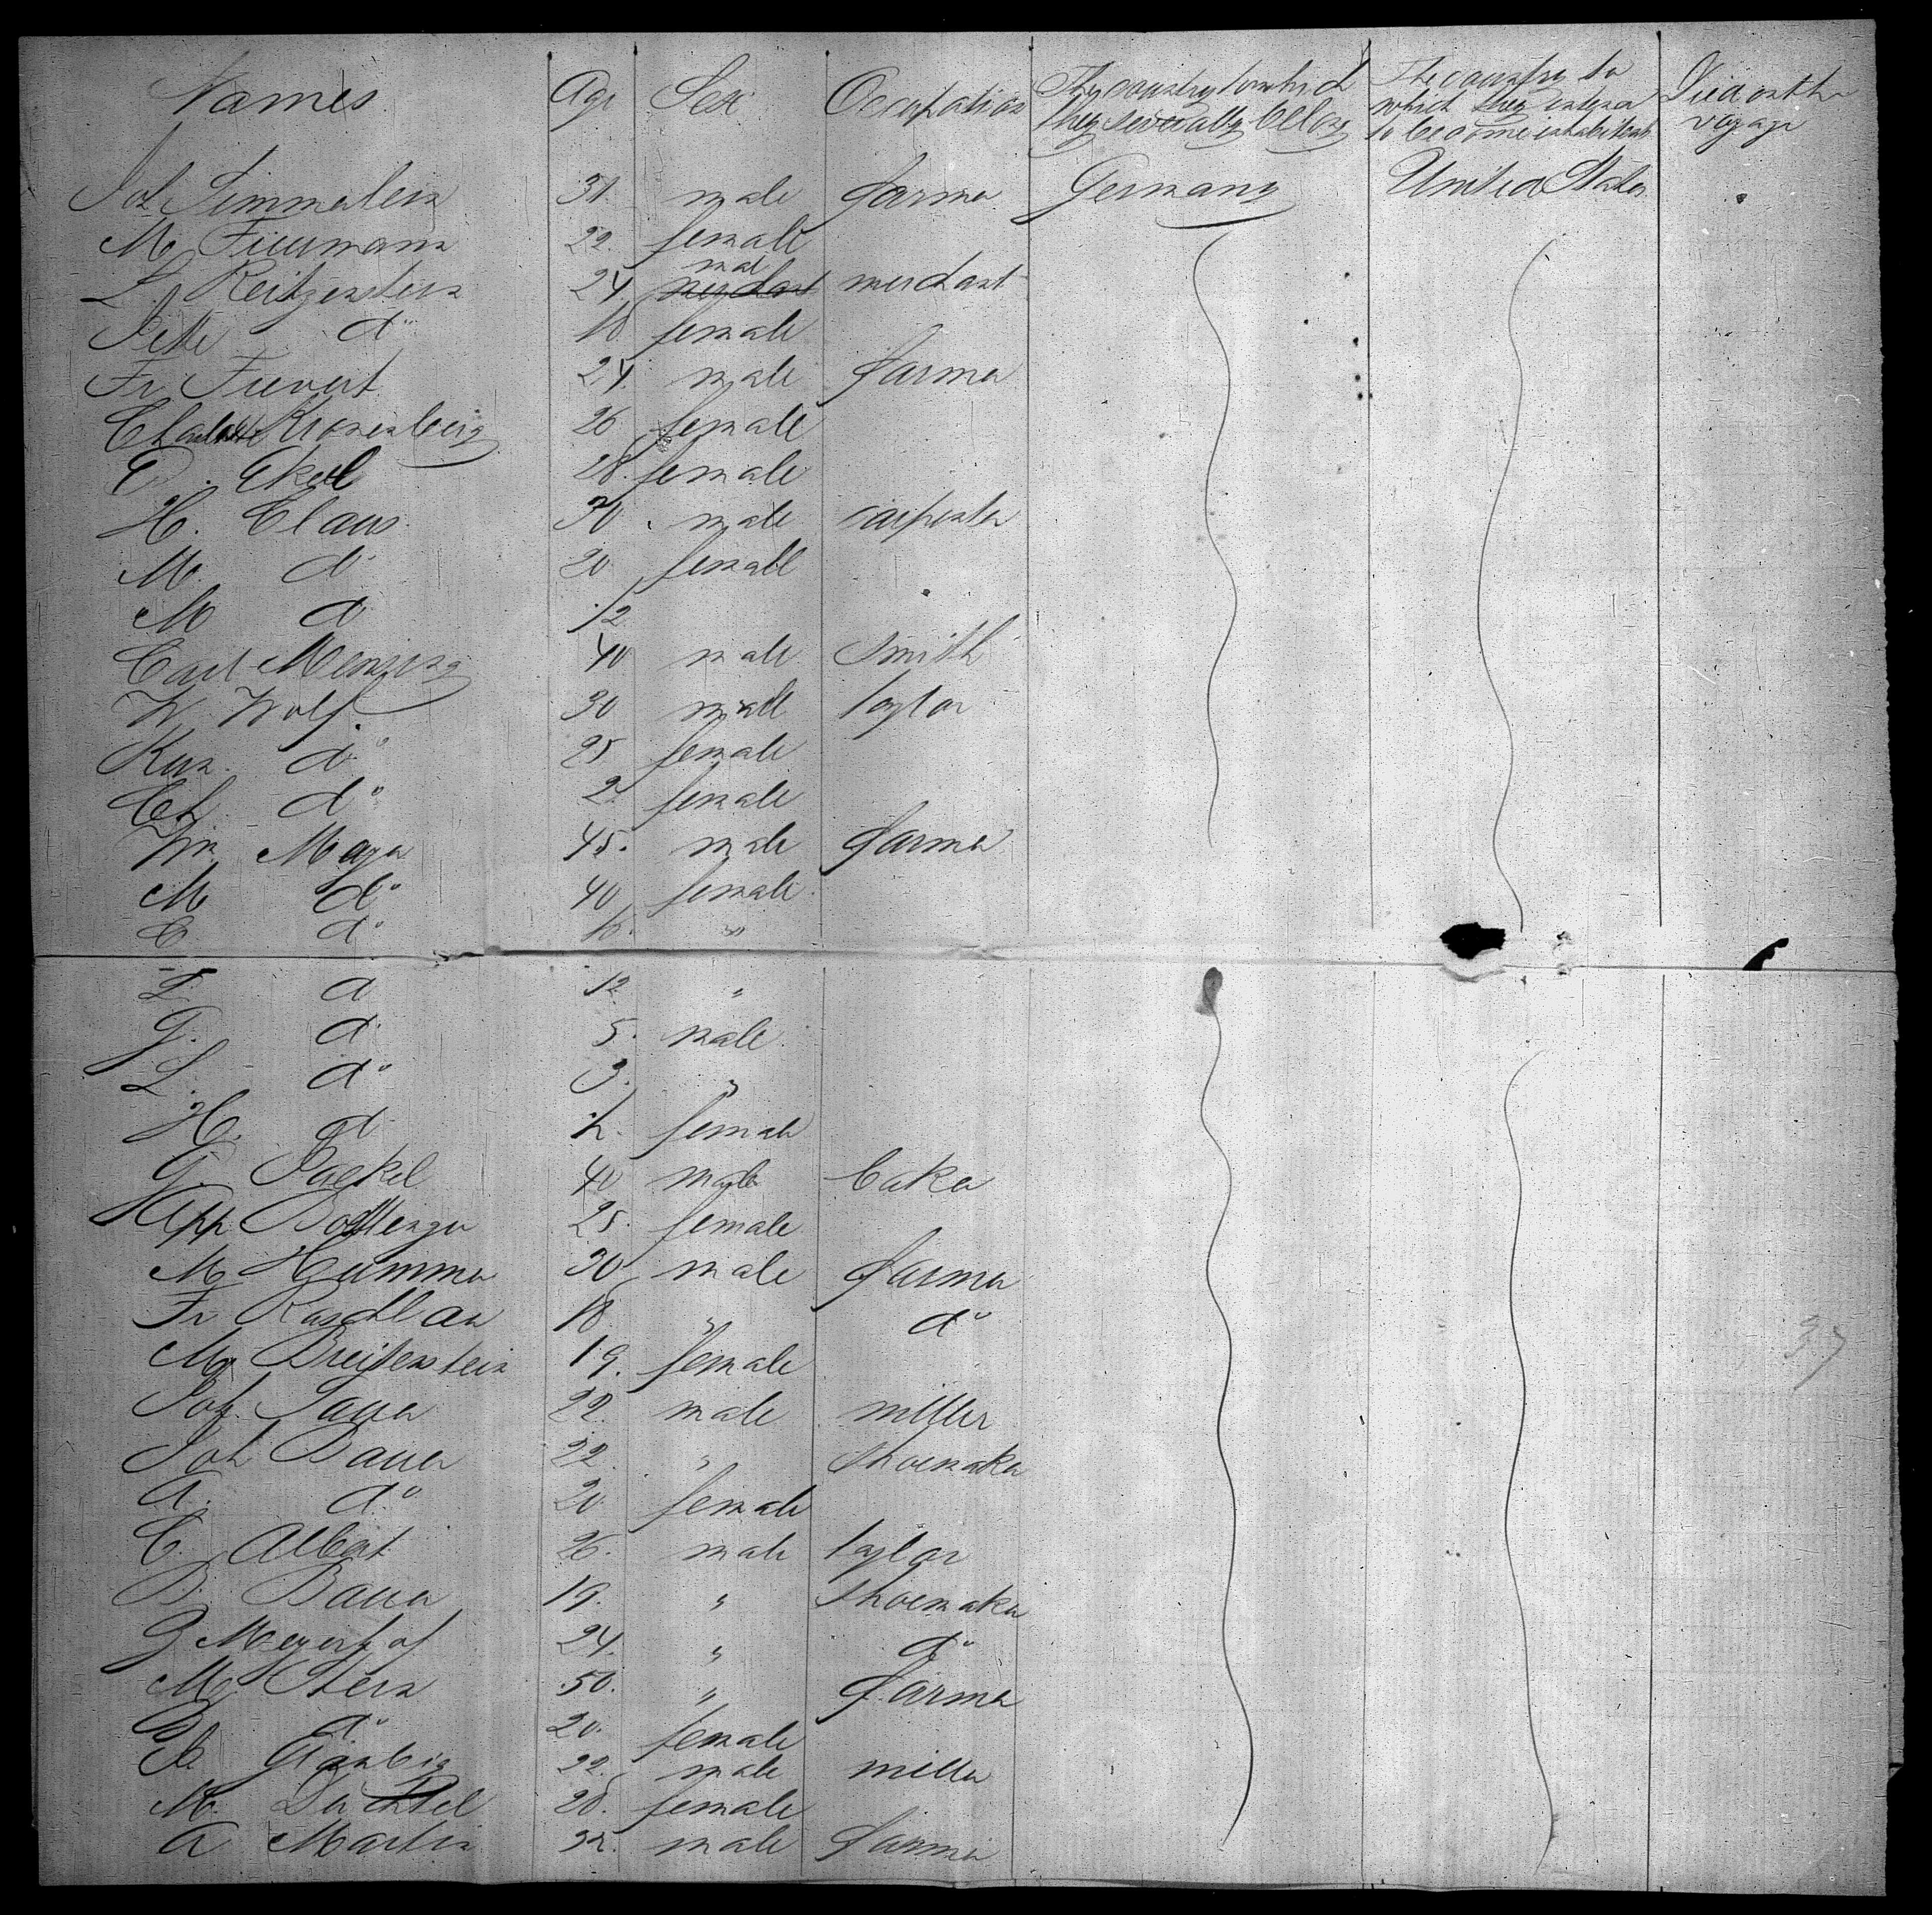 Names Age Sex Occupation The country to which they severally belong The country to which they intend to become inhabitants Died on the voyage
Joh Simmalein 31. male farmer Germany United States
M. Fuurmann 22. female
L. Reitzenstein 24 male merchant merchant
Jette do 18 female
Fr. Fievert 24. male farmer
Charlotte Kronenberg 26 female
E. Ekel 28. female
H. Claus 30. male carpenter
M. do 20 female
M do 1/2
Carl Mensing 40 male smith
W. Wolf. 30 male taylor
Kun. do 25 female
Ch. do 2 female
Wm. Meyer 45. male farmer
M do 40 female
C. do 16. "
L. do 12. "
G. do 5. male
L. do 3. "
H. do 1/2. female
G. Jaekel 40 male baker
Kepp Bottenger 25. female
M. Hummer 30 male farmer
Fr Raschlan 18. " do
Mg Breitenstein 19. female
Joh. Sauer 22. male miller
Joh Bauer 22. " shoemaker
A. do 20 female
C. Albert 26. male taylor
B. Bauer 19. " shoemaker
G Meyerhof 24. " do
M. Stern 50. " farmer
do 20. female
22. male miller
M. 28. female
A Martin 32. male farmer
37